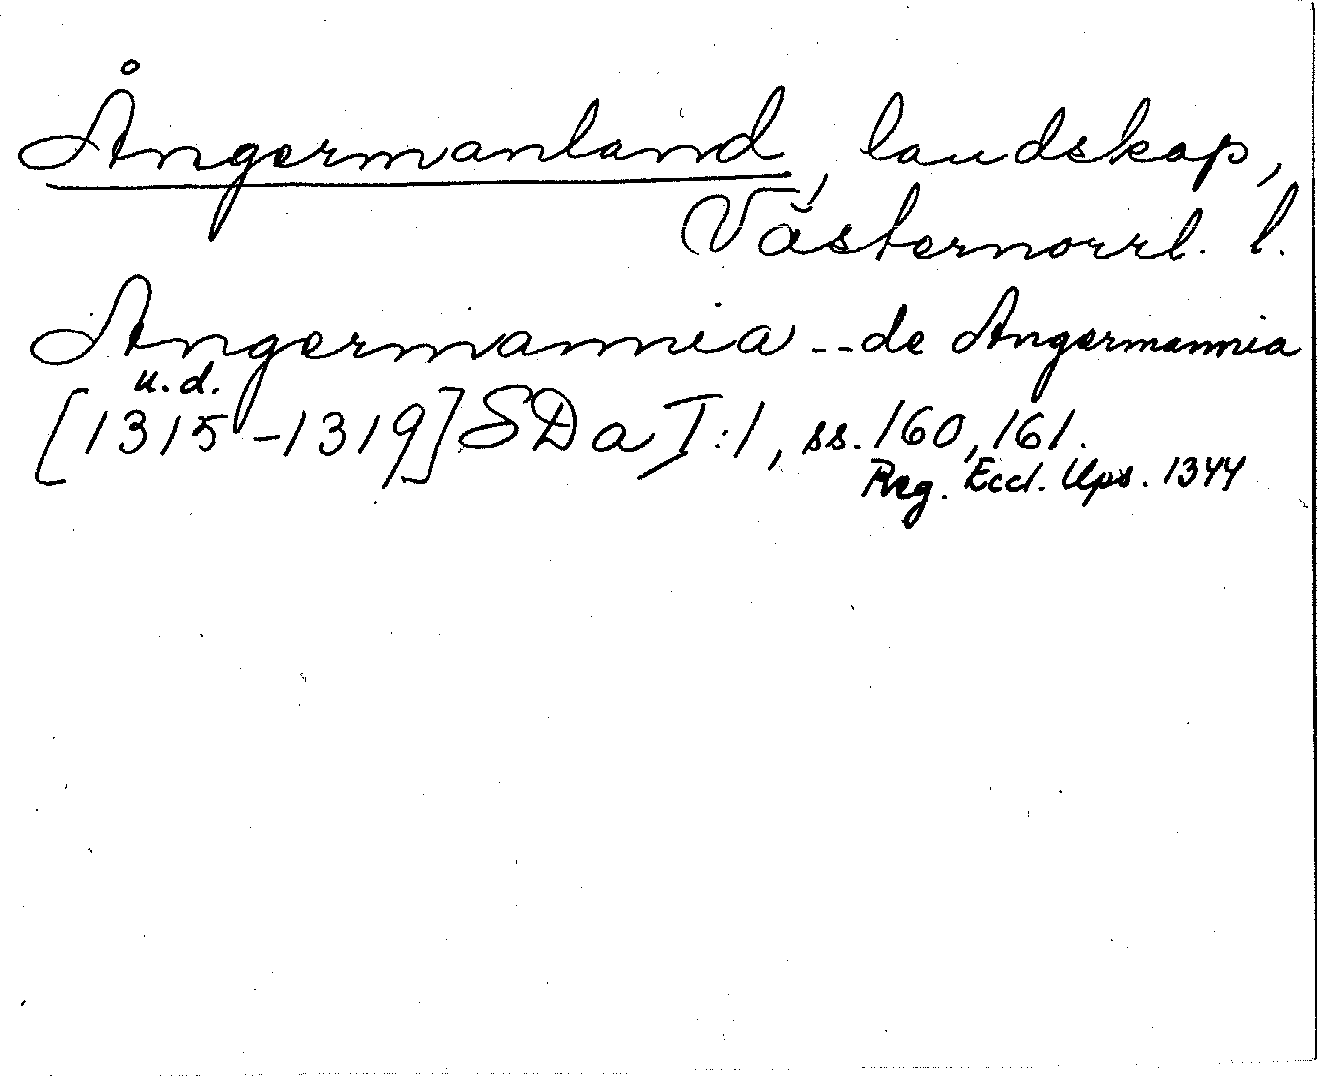 Ångermanland, landskap,
Västernorrl. l.
Angermannia -- de Angermannia
u.d.
[1315-1319] SD a I:1, ss. 160, 161.
Reg. Eccl. Ups. 1344